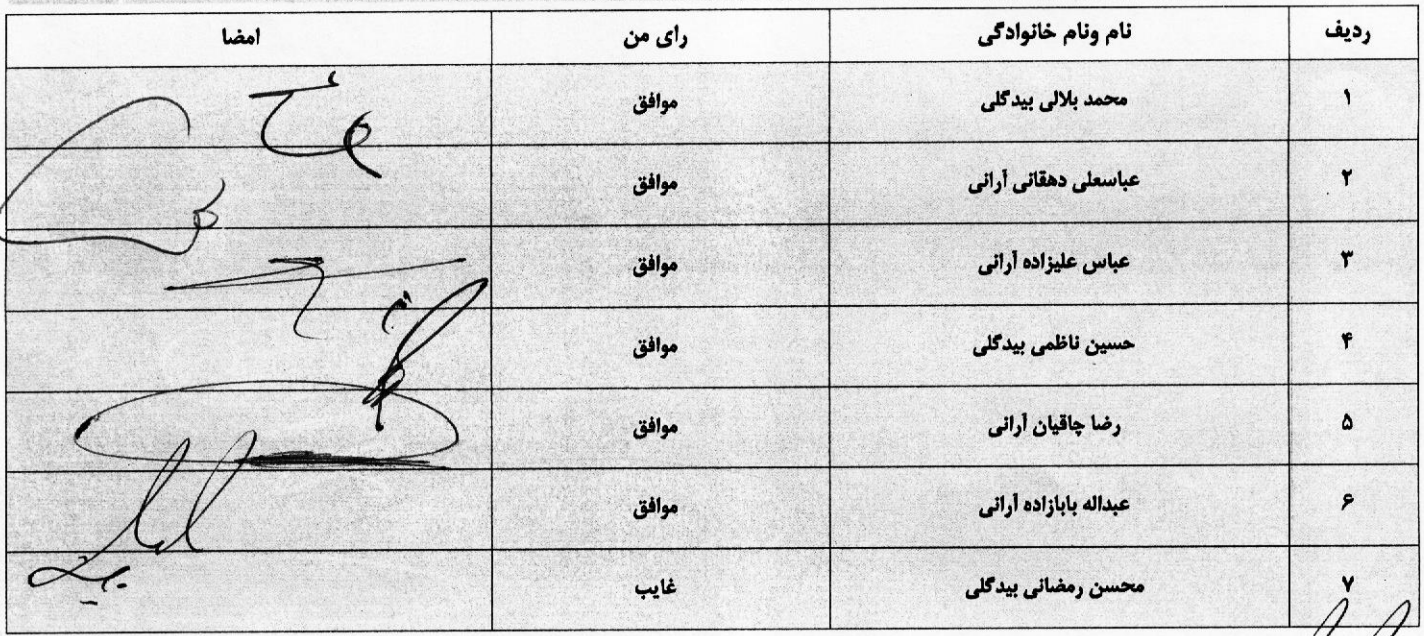 ردیف نام ونام خانوادگی رای من امضا
۱ محمد بلالی بیدگلی موافق
۲ عباسعلی دهقانی آرانی موافق
۳ عباس علیزاده آرانی موافق
۴ حسین ناظمی بیدگلی موافق
۵ رضا چاقیان آرانی موافق
۶ عبداله بابازاده آرانی موافق
۷ محسن رمضانی بیدگلی غایب